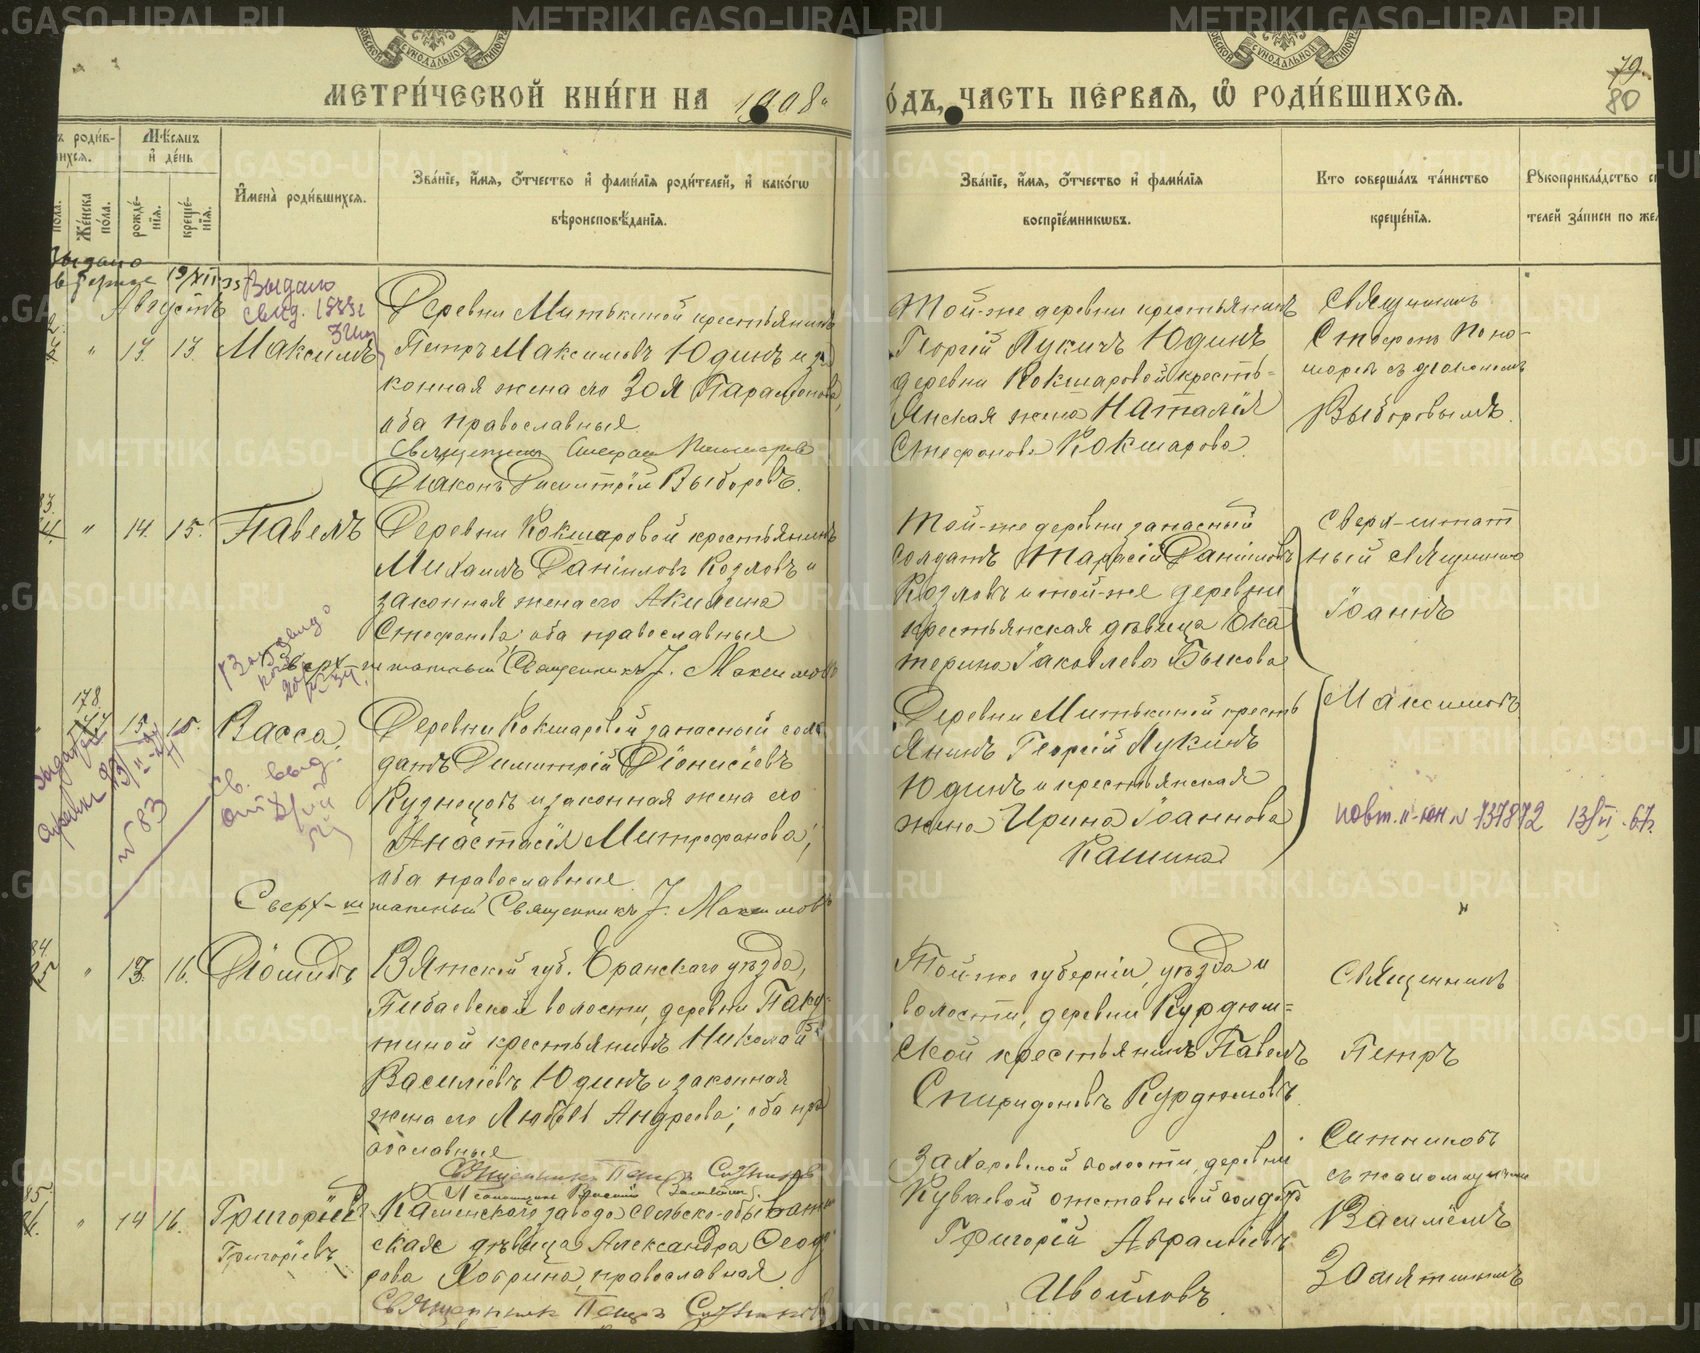 МЕТРИ́ЧЕСКОЙ КНИ́ГИ НА 1908
ОДЪ, ЧАСТЬ ПЕРВАЯ, Ѽ РОДИ́ВШИХСЯ.
79
80
ъ роди́в-
шихся.
Мѣсяцъ
и҆ де́нь
пола.
Же́нска
по́ла.
рожде́-
нїя.
креще́-
нїя.
И҆мена̀ роди́вшихся.
Зва́нїе, и҆́мя, ѻ҆́тчество и҆ фами́лїя роди́телей, и҆ како́гѡ
вѣроисповѣ́данїя.
Зва́нїе, и҆́мя, ѻ҆́тчество и҆ фами́лїя
воспрїе́мникѡвъ.
Кто соверша́лъ та́инство
креще́нїя.
Рꙋкоприкла́дство с
телей за́писи по же
Выдано
19/XII 35
Выдано
свид. 1533
Августъ
13. 13. Максимъ
Деревни Митькиной крестьянинъ
Петръ Максимовъ Юдинъ и за
конная жена его Зоя Парамонова,
оба православные.
Священник Стефан Пономарев
Діаконъ Димитрій Выборовъ.
Той-же деревни крестьянинъ
Георгій Лукичъ Юдинъ
деревни Кокшаровой кресть-
янская жена Наталія
Стефонова Кокшарова.
Священникъ
Стефанъ Поно-
маревъ съ діакономъ
Выборовымъ.
14. 15. Павелъ
Деревни Кокшаровой крестьянинъ
Михаилъ Даніиловъ Козловъ и
законная жена его Акилина
Стефонова; оба православные
Сверх-штатный Священникъ І. Максимовъ
Той-же деревни запасный
солдатъ Тарасій Даніиловъ
Козловъ и той-же деревни
крестьянская дѣвица Ека
терина Іаковлева Быкова
Сверх-штат
ный Священникъ
Іоаннъ
Максимовъ
178
15. 15. Васса,
Деревни Кокшаровой запасный сол
датъ Димитрій Діонисіевъ
Кузнецовъ и законная жена его
Анастасія Митрофанова;
оба православные.
Сверх-штатный Священникъ І. Максимовъ
Деревни Митькиной кресть
янинъ Георгій Лукинъ
Юдинъ и крестьянская
жена Ирина Іоаннова
Кашина
№ 83
Св. выд.
повт. II-ЮН № 737872 13/VI-67г.
84
13. 16. Діомидъ
Вятской губ. Яранскаго уѣзда,
Пибаевской волости, деревни Паку-
тиной крестьянинъ Николай
Василіевъ Юдинъ и законная
жена его Любовь Андреева; оба пра
вославные
Священникъ Петръ Ситниковъ
Той-же губерніи, уѣзда и
волости, деревни Курдюм=
ской крестьянинъ Павелъ
Спиридоновъ Курдюмовъ.
Священникъ
Петръ
Ситниковъ
съ псаломщикомъ
Василіемъ
Замятинымъ
85
14 16. Григорій
Григоріевъ
Каменскаго завода сельско-обыват
ская дѣвица Александра Ѳеодо
рова Кобрина, православная
Священникъ Петръ Ситниковъ
Захаровской волости, деревни
Куваевой отставный солдатъ
Григорій Авраміевъ
Ивойловъ.
METRIKI.GASO-URAL.RU